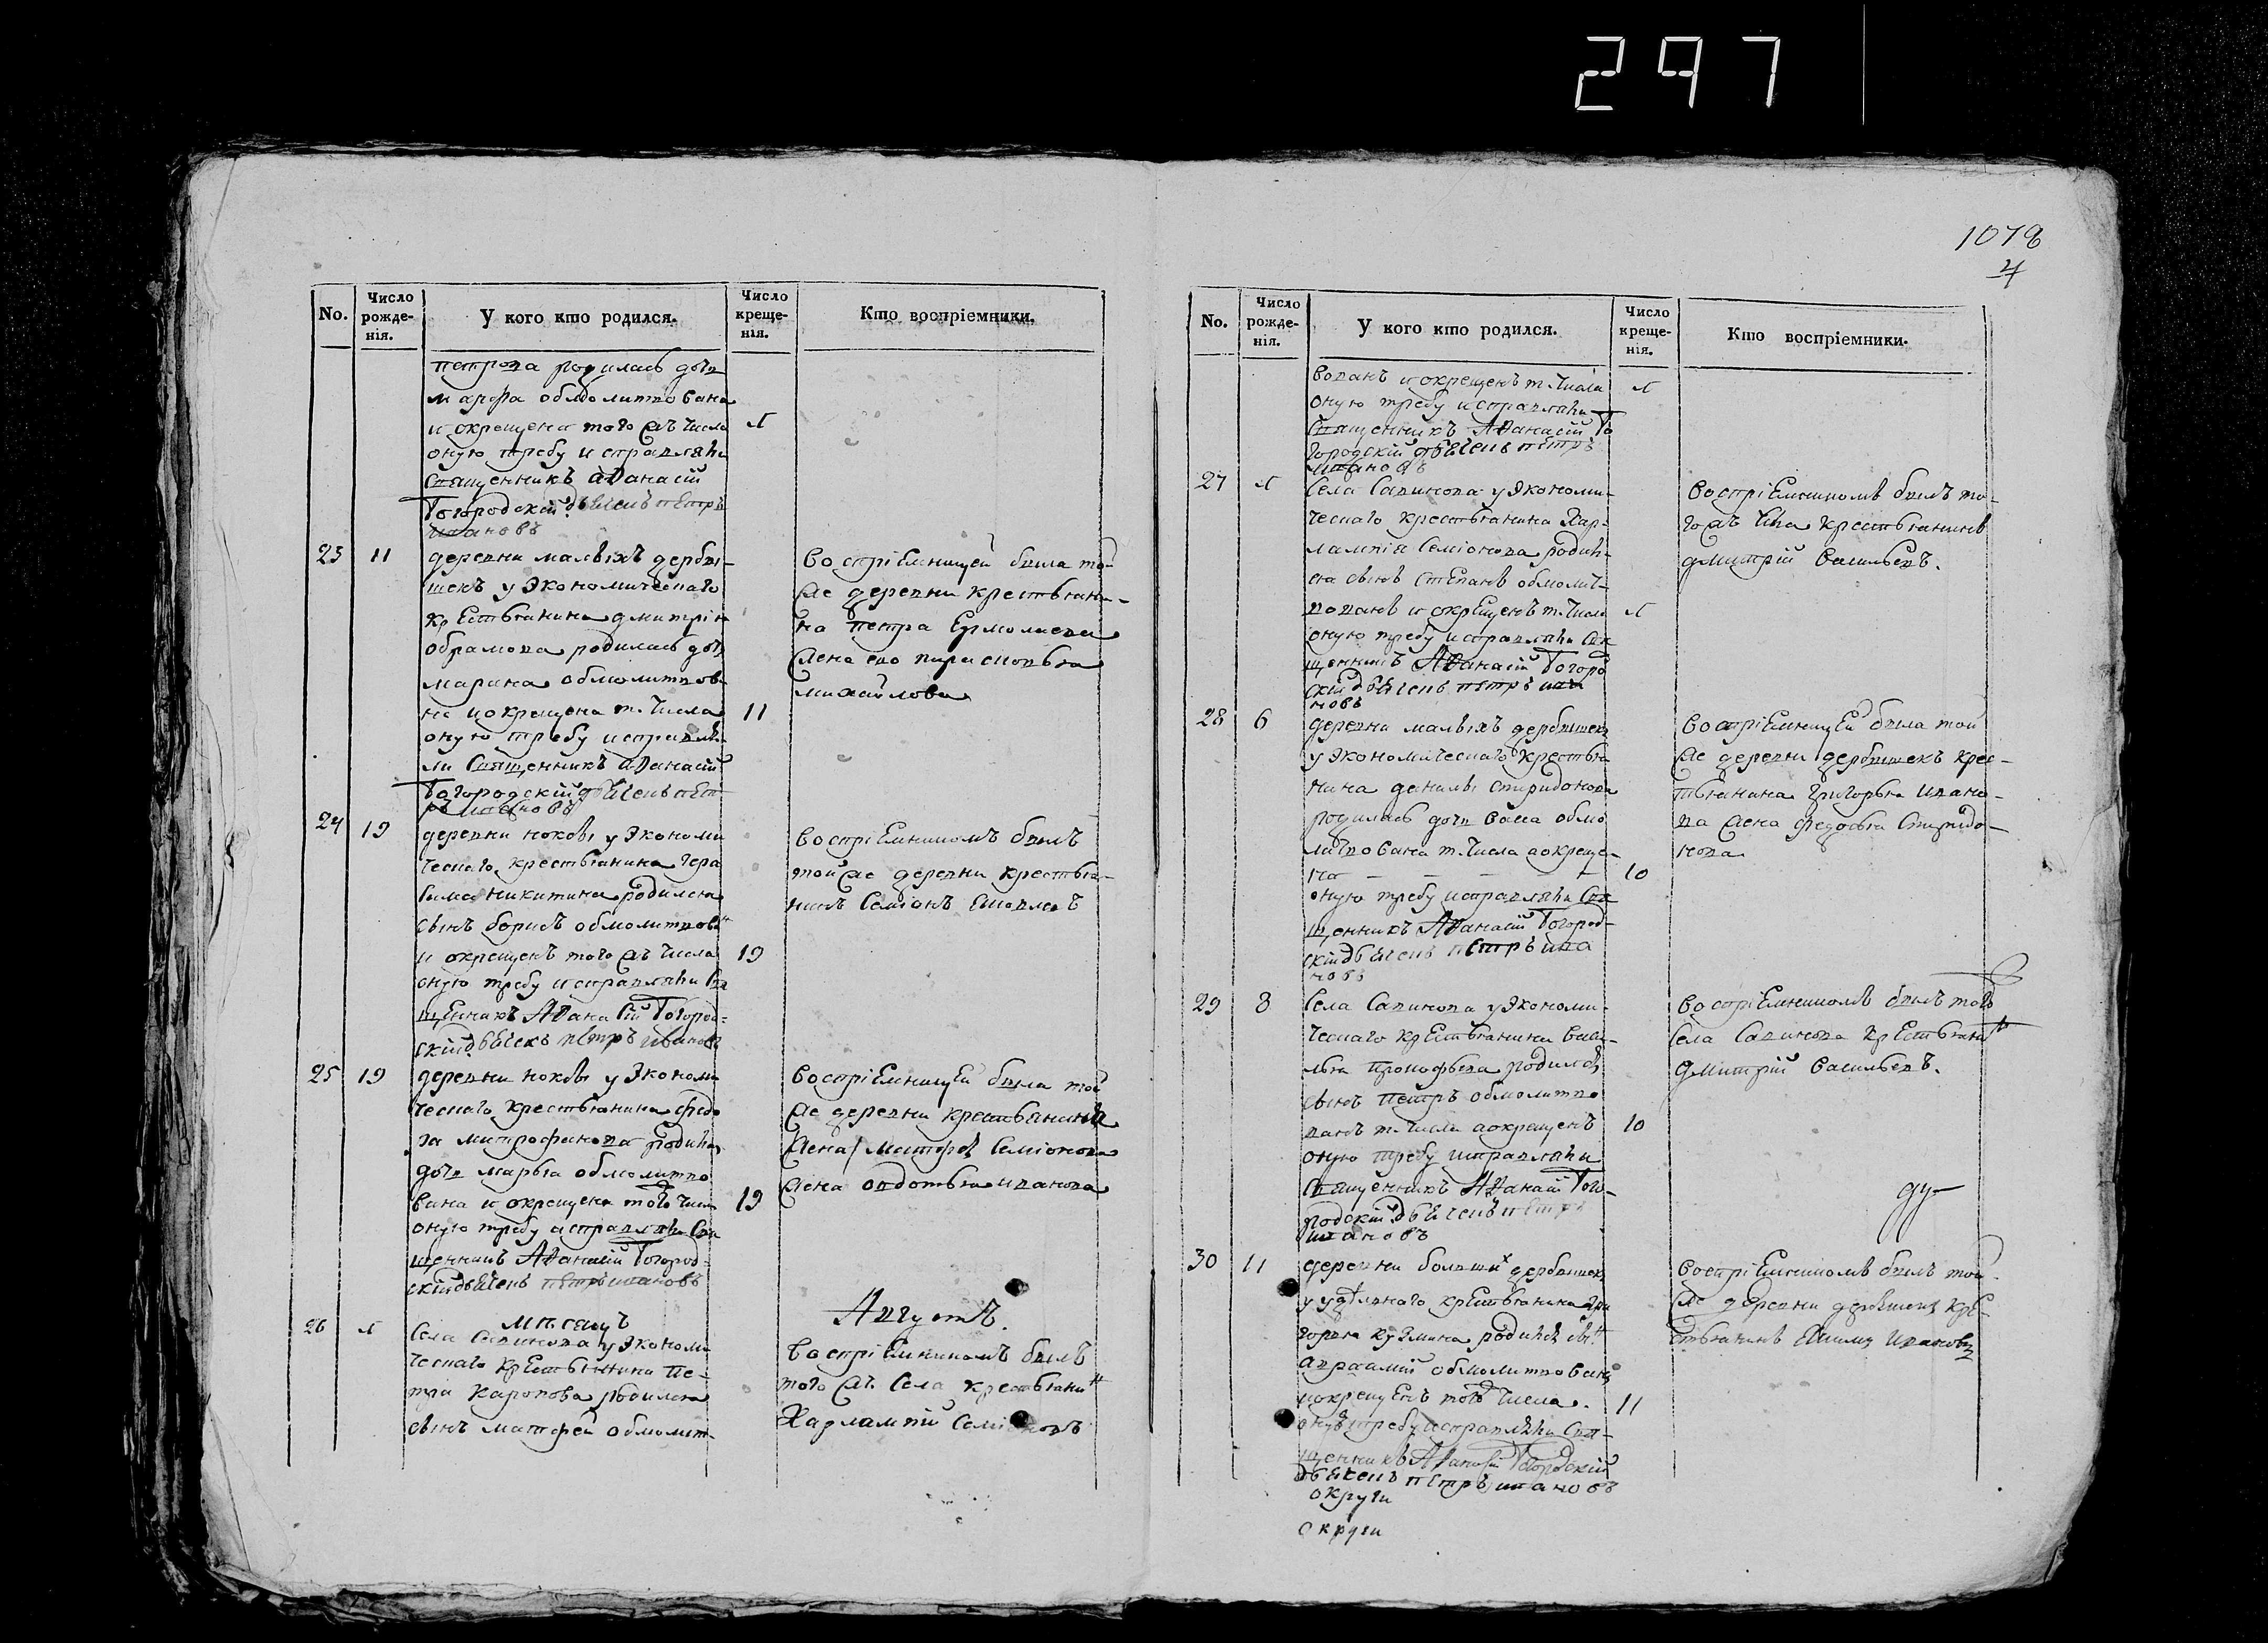 297
1078
4
No.
Число рожде- нія.
У кого кто родился.
Число креще- нія.
Кто воспріемники.
петрова родилась дочь
марфа обмолитвована
и окрещена того жъ числа
оную требу исправляли
Священникъ аѳанасій
Богородскій дьячекъ петръ
ивановъ
23 11
деревни малыхъ дербы-
шекъ у Экономическаго
крестьянина дмитрія
абрамова родилась дочь
марина обмолитвова-
на и окрещена т. числа 11
оную требу исправля-
ли Священникъ аѳанасій
Богородскій дьячекъ пет-
ръ ивановъ
Воспріемницей была той
же деревни крестьяни-
на петра Ермолаева
жена ево парасковья
михайлова
24 19
деревни ноксы у Экономи
ческаго крестьянина гера
сима никитина родился
сынъ борисъ обмолитвован
и окрещенъ того жъ числа 19
оную требу исправляли Свя
щенникъ Аѳанасій Богород-
скій дьячекъ петръ ивановъ
Воспріемникомъ былъ
той же деревни крестья-
нинъ Семіонъ
25 19
деревни ноксы у Экономи
ческаго крестьянина федо
ра митрофанова родилась
дочь марья обмолитво
вана и окрещена того числа 19
оную требу исправляли Свя
щенникъ Аѳанасій Богород-
скій дьячекъ петръ ивановъ
Воспріемницей была той
же деревни крестьянина
Семіонова
жена авдотья иванова
мѣсяцъ Августъ
26
Села Савинова у Экономи
ческаго крестьянина Пе-
тра карпова родился
сынъ матфей обмолит-
Воспріемникомъ былъ
того жъ Села крестьянин
Харлампій Семіоновъ
No.
Число рожде- нія.
У кого кто родился.
Число креще- нія.
Кто воспріемники.
вованъ и окрещенъ т. числа
оную требу исправляли
Священникъ Аѳанасій Бо
городскій дьячекъ петръ
ивановъ
27
Села Савинова у Экономи-
ческаго крестьянина Хар-
лампія Семіонова родил-
ся сынъ степанъ обмолит-
вованъ и окрещенъ т. числа
оную требу исправляли Свя
щенникъ Аѳанасій Богород
скій дьячекъ петръ ива
новъ
Воспріемникомъ былъ то-
го жъ села крестьянинъ
дмитрій Васильевъ.
28 6
деревни малыхъ дербышек
у Экономическаго крестья
нина данилы спиридонова
родилась дочь Васа обмо
литвована т. числа а окреще-
на 10
оную требу исправляли Свя
щенникъ Аѳанасій Богород-
скій дьячекъ петръ ива
новъ
Воспріемницей была той
же деревни дербышекъ крес-
тьянина Григорья Ивано-
ва жена федосья Спиридо-
нова
29 8
Села Савинова у Экономи-
ческаго крестьянина Васи-
лья Прокофьева родился
сынъ петръ обмолитво
ванъ т. числа а окрещенъ 10
оную требу исправляли
Священникъ Аѳанасій Бого-
родскій дьячекъ петръ
ивановъ
Воспріемникомъ былъ того
Села Савинова крестьянин
Дмитрій Васильевъ.
ду-
30 11
деревни большихъ дербышек
у удѣльнаго крестьянина Гри
горья кузмина родился сын
авраамій обмолитвованъ
и окрещенъ того числа. 11
оную требу исправляли Свя-
щенникъ Аѳанасій Богородскій
дьячекъ петръ ивановъ
округи
округи
Воспріемникомъ былъ той
же деревни дербышекъ кре-
стьянинъ Якимъ Ивановъ